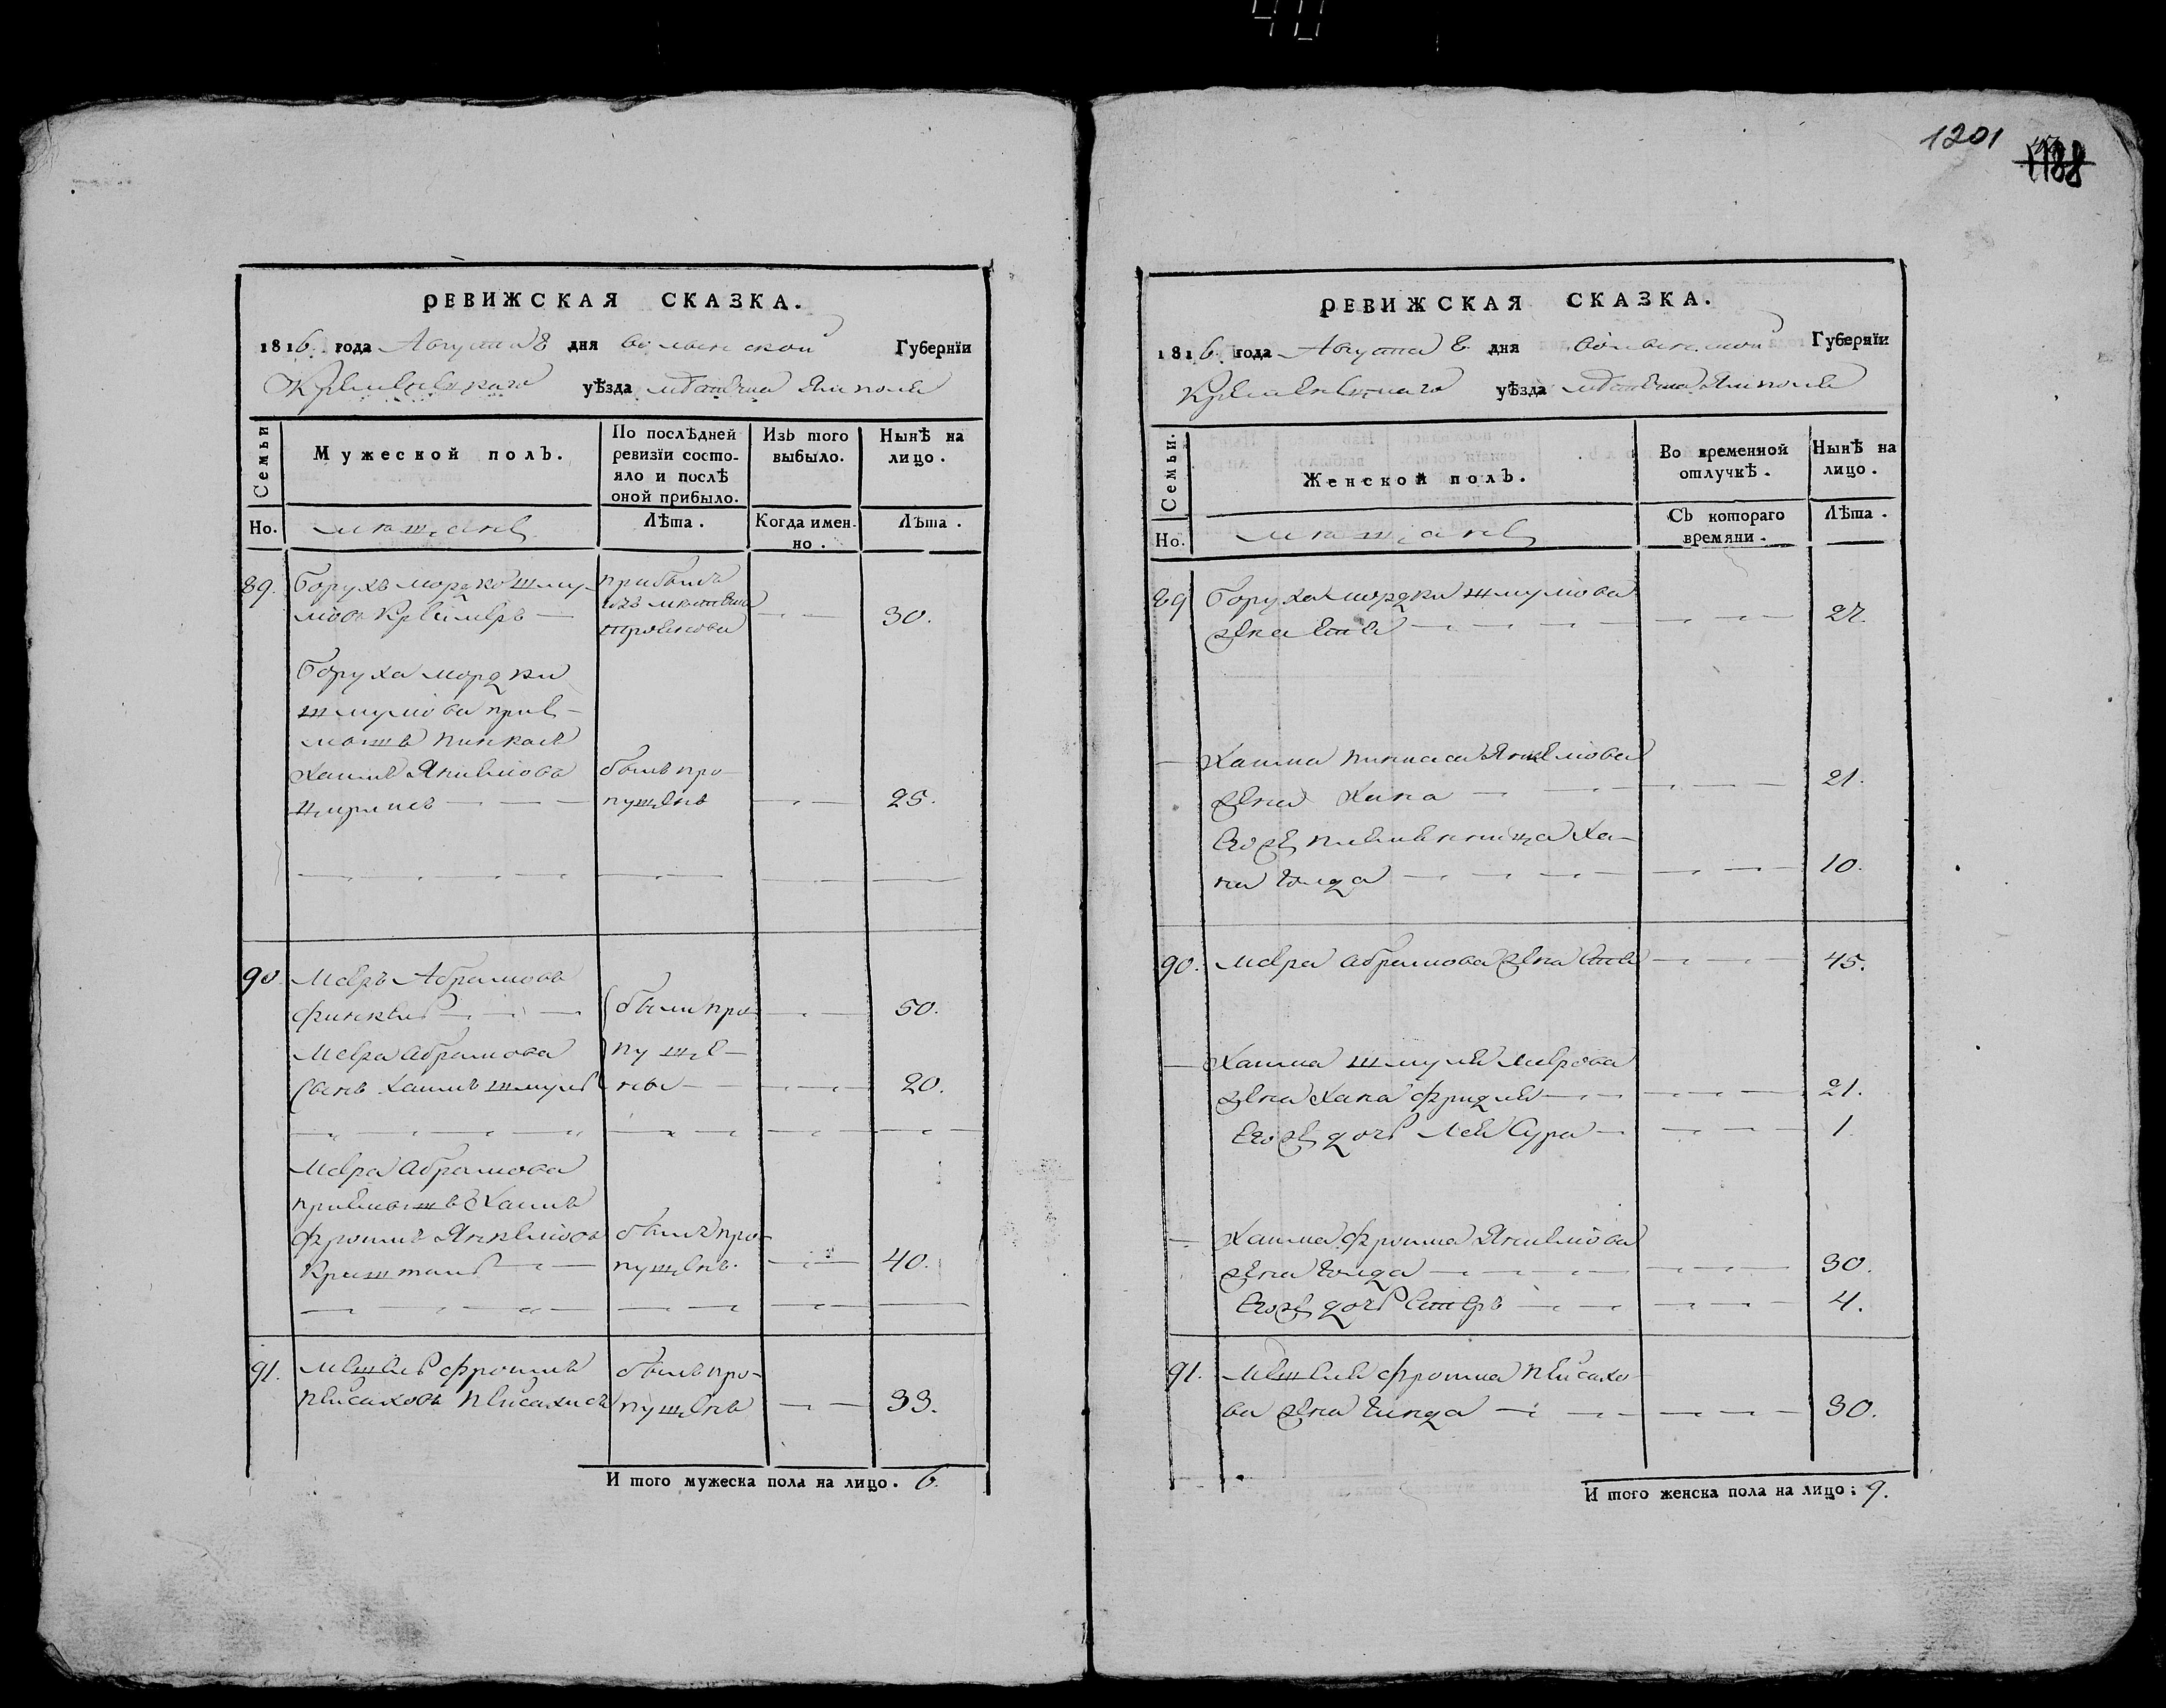 1201
1188
РЕВИЖСКАЯ СКАЗКА.
1816 года Августа 8 дня Волынской Губернїи
Кременецкаго уѣзда мѣстечка Ямполя
Семьи
Мужеской полъ.
По послѣдней ревизїи состояло и послѣ оной прибыло.
Изъ того выбыло.
Нынѣ на лицо.
Но.
мѣщане
Лѣта.
Когда именно.
Лѣта.
89. Борухъ Мордко Шму-
лёвъ Кремеръ
прибылъ
изъ местечка
30.
Боруха Мордки
Шмулёва прiе-
мышъ Пинкасъ
Хаимъ Янкелёвъ
былъ про-
пущенъ
25.
90 Мееръ Абрамовъ
Финкель
50.
Меера Абрамова
сынъ Хаимъ Шмуль
были про-
пуще-
ны
20.
Меера Абрамова
приемышъ Хаимъ
Фроимъ Янкелёвъ
Криштал
былъ про-
пущенъ.
40.
91. Мошель Фроимъ
Пейсаховъ Пейсахисъ
былъ про-
пущенъ
33.
И того мужеска пола на лицо. 6.
РЕВИЖСКАЯ СКАЗКА.
1816 года Августа 8 дня Волынской Губернїи
Кременецкаго уѣзда мѣстечка Ямполя
Семьи.
Женской полъ.
Во временной отлучкѣ.
Нынѣ на лицо.
Но.
мѣщане
Съ котораго времяни.
Лѣта.
89 Боруха Мордки Шмулёва
жена Етя
27.
Хаима Пинкаса Янкелёва
жена Хана
21.
Его же племенница Ха-
на Голда
10.
90. Меера Абрамова жена Етя
45.
Хаима Шмуля Меерова
жена Хана Фридля
21.
Его же дочь Лея Сура
1.
Хаима Фроима Янкелёва
жена Голда
30.
Его же дочь Естеръ
4.
91. Фроима Пейсахо-
ва жена Гинда
30.
И того женска пола на лицо: 9.